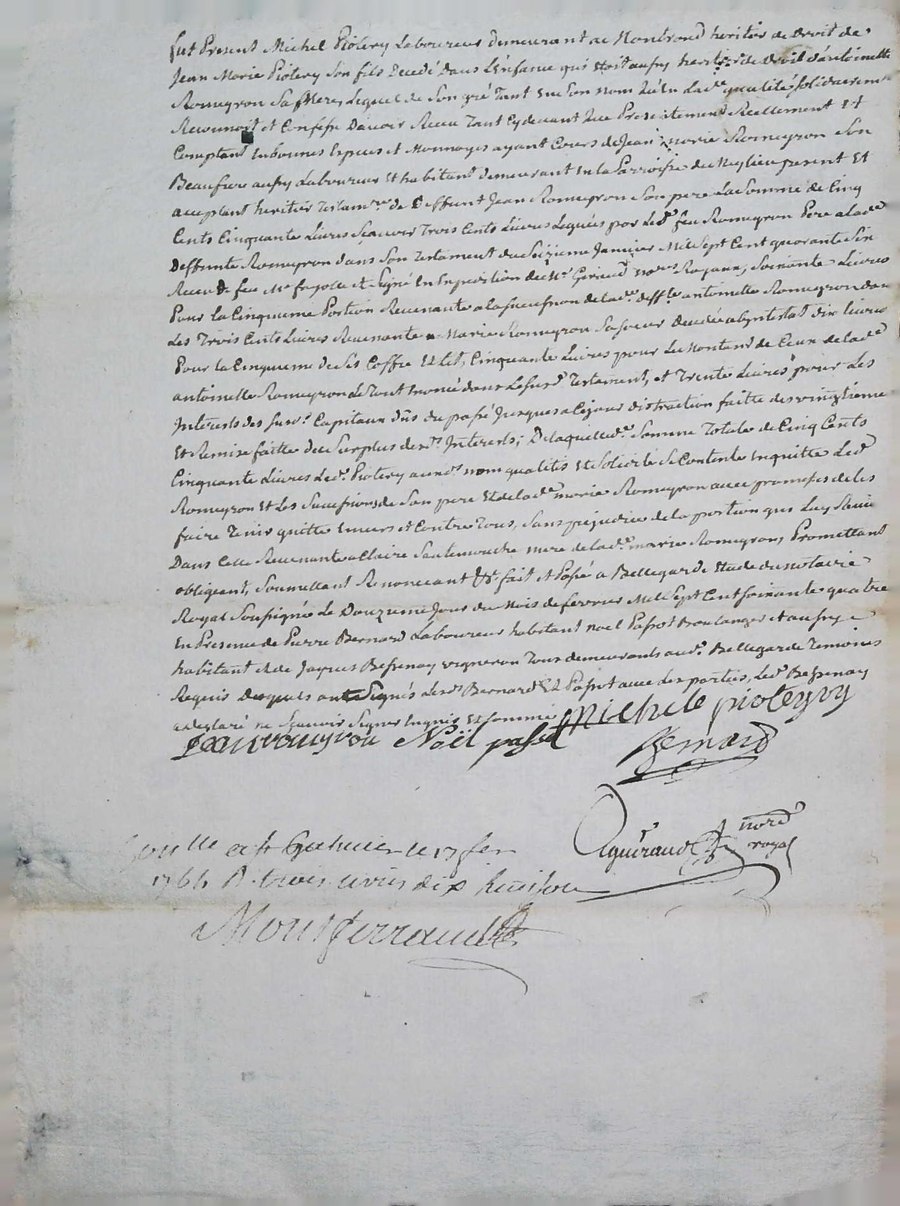 fut Present Michel Pioteyry Laboureur demeurant a Montrond heritier de Droit de
Jean Marie Pioteyry Son fils Decedé Dans L'enfance qui Etoit aussy heritier de Droit d'antoinette
Romeyron Sa Mere, Lequel de Son gré Tant En Son nom Qu'en Lad.e qualité Solidairement
Reconnoit et Confesse D'avoir Receu Tant Cydevant Que Presentement Reellement Et
Comptant En bonnes Especes et Monnoyes ayant Cours de Jean Marie Romeyron Son
Beaufrere aussy Laboureur Et habitant demeurant En la Parroisse de present Et
acceptant heritier Testam.re de Deffunt Jean Romeyron Son pere La Somme de Cinq
Cents Cinquante Livres Sçavoir Trois Cents Livres Leguées par Led. feu Romeyron Pere a Lad.e
Deffunte Romeyron dans Son Testament du Seizieme Janvier Mil Sept Cent quarante Six
Receu p. feu M.e et Signé En Expedition de M.e Giraud no.re Royaux, Soixante Livres
Pour la Cinquieme Portion Revenante a la Succession de lad.e deff.te antoinette Romeyron dans
Les Trois Cents Livres Revenante a Marie Romeyron Sa Soeur Decedée abyntestat dix livres
Pour la Cinquieme de Ses Coffre Et Lit, Cinquante Livres pour Le Montant de Ceux de lad.e
antoinette Romeyron Le Tout dans Le Susd. Testament, et Trente Livres pour Les
Interests des Susd. Capitaux dûs du passé Jusques a Ce jour distraction faitte des vingtieme
Et Remise faitte du Surplus desd. Interests; De laquelle d.e Somme Totale de Cinq Cents
Cinquante Livres Led. Pioteyry auxd. nom qualités Et Solidité Se Contente En quitte Led.
Romeyron Et Les Successions de Son pere Et de lad.e marie Romeyron avec promesse de les
faire Tenir quitte Envers Et Contre Tous, Sans prejudice de la portion qui Luy
Dans Celle Revenante a Claire mere de lad.e marie Romeyron, Promettant
obligeant, Soumettant Renonceant &c. fait Et Passé a Bellegarde Etude du notaire
Royal Soussigné Le Douzieme Jour du Mois de fevrier Mil Sept Cent Soixante quatre
En Presence de Pierre Bernard Laboureur habitant Noel Passot Boulanger Et aussy
habitant Et de Jaques Bessenay vigneron Tous demeurants aud. Bellegarde Temoins
Requis Desquels ont Signés Lesd. Bernard Et Passot avec les parties, Led. Bessenay
a declaré ne Sçavoir Signer Enquis Et Sommé
Michele pioteyry
Jean romeyron Noël passot
Bernard
Giraud no.re royal
Controllé a St Galmier le 17 fev
1764 R. trois livres dix huit sou
Montferrand